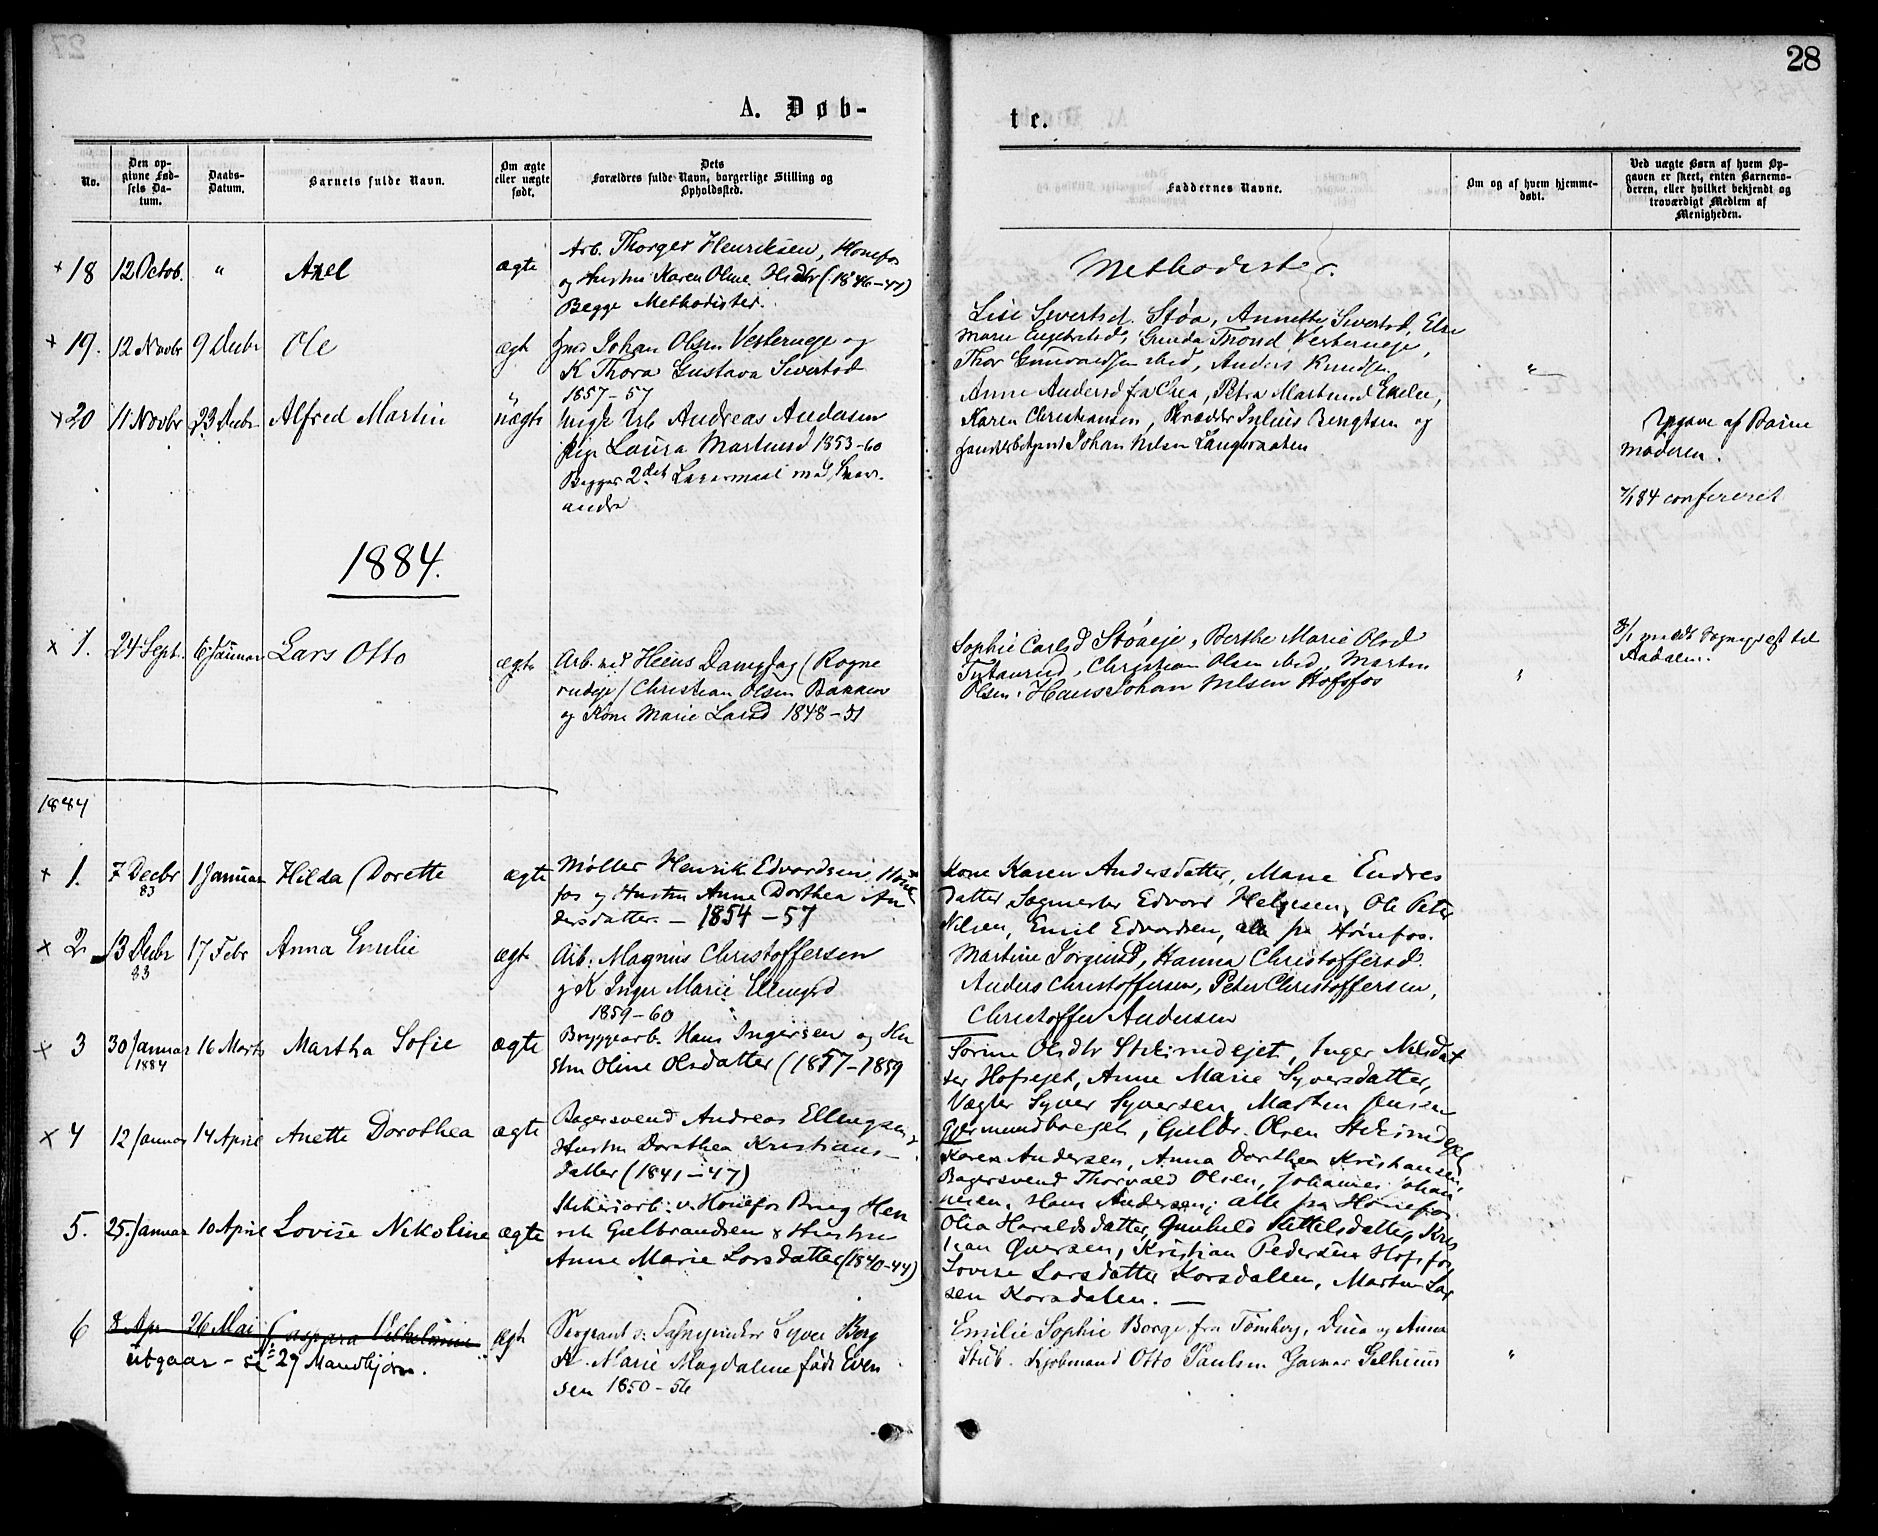 28
A. Døb-
te.
No.
Den op-
givne Fød-
sels Da-
tum.
Daabs-
Datum.
Barnets fulde Navn.
Om ægte
eller uægte
født.
Dets
Forældres fulde Navn, borgerlige Stilling og
Opholdssted.
Faddernes Navne.
Om og af hvem hjemme-
døbt.
Ved uægte Børn af hvem Op-
gaven er skeet, enten Barnemo-
deren, eller hvilket bekjendt og
troværdigt Medlem af
Menigheden.
18 12 Octob. " Axel ægte
Arb. Thorger Henriksen, Hønefos
og Hustru Karen Oline Olsdtr (1846-47)
Begge Methodister.
Methodister.
19. 12 Novbr 9 Decbr Ole ægt
Johan Olsen Vesterneje og
K Thora Gustava Sivertsd
1857-57
Lise Sivertsd. Støa, Annette Sivertsd, Else
Marie Gunda Trond Vesterneje,
Thor Anders Knudsen
"
20 11 Novbr 23 Decbr Alfred Martin uægte
Ungk Arb Andreas Andersen
Pige Laura Martinsd 1853-60
Begges 2det Leiermaal med hver-
andre
Anne Andersd fra Petra
Karen Christiansen, Skrædder Julius Bengtsen og
Johan Nilsen
Opgave af Barne
moderen.
7/1 84 confereret
1884.
1. 24 Sept. 6 Januar Lars Otto ægte
Arb. ved Heens Dampsag (Rogne
rudeje) Christian Olsen Bakken
og Kone Marie Larsd 1848-51
Sophie Carlsd Støaeje, Berthe Marie Olsd
Christian Olsen ibid, Martin
Olsen, Hans Johan Nilsen Hofsfos
"
8/1 til
Aadalen.
1884
1. 7 Decbr 83 1 Januar Hilda Dorette ægte
Møller Henrik Edvardsen, Høne
fos og Hustru Anne Dorthea An
dersdatter. - 1854-57
Kone Karen Andersdatter, Marie Endres
datter Sagmester Edvard Helgesen, Ole Peter
Nilsen, Emil Edvardsen, alle fra Hønefos.
2 13 Decbr 83 17 Febr Anna Emilie ægte
Arb. Magnus Christoffersen
og K Inger Marie Ellingsd
1859-60
Martine Jørginsd, Hanna Christoffersd.
Anders Christoffersen, Peter Christoffersen,
Christoffer Andersen
3 30 Januar 1884 16 Marts Martha Sofie ægte
Bryggearb. Hans Ingersen og Hu
stru Oline Olsdatter (1857-1859
Sorine Olsdtr Inger Nilsdat
ter Hofsejet, Anne Marie Syversdatter,
Vægter Syver Syversen, Martin Jensen
Gulbr. Olsen
4 12 Januar 14 April Anette Dorothea ægte
Bagersvend Andreas Ellingsen
Hustru Dorothea Kristians-
datter (1841-47)
Karen Andersen, Anna Dorthea Kristiansen,
Bagersvend Thorvald Olsen, Johannes Johan
nesen, Hans Andersen; alle fra Hønefos.
5. 25. Januar 10 April Lovise Nikoline ægte
Sliberiarb. v. Hønefos Brug Hen
rik Gulbrandsen & Hustru
Anne Marie Larsdatter (1840-44)
Olia Haraldsdatter, Gunhild Kittelsdatter, Kris
tian Iversen, Kristian Pedersen Hofsfos,
Lovise Larsdatter Korsdalen, Martin Lar
sen Korsdalen. -
6 8 Apr 26 Mai Caspara Vilhelmine ægt
udgaar - se 29 Mandkjøn.
Sergeant v. Syver Borg
K. Marie Magdalene født Even
sen 1850-56
Emilie Sophie Borge fra Tønsberg, Dina og Anna
Stub. Kjøbmand Otto Paulsen Garver Gelhuus
"